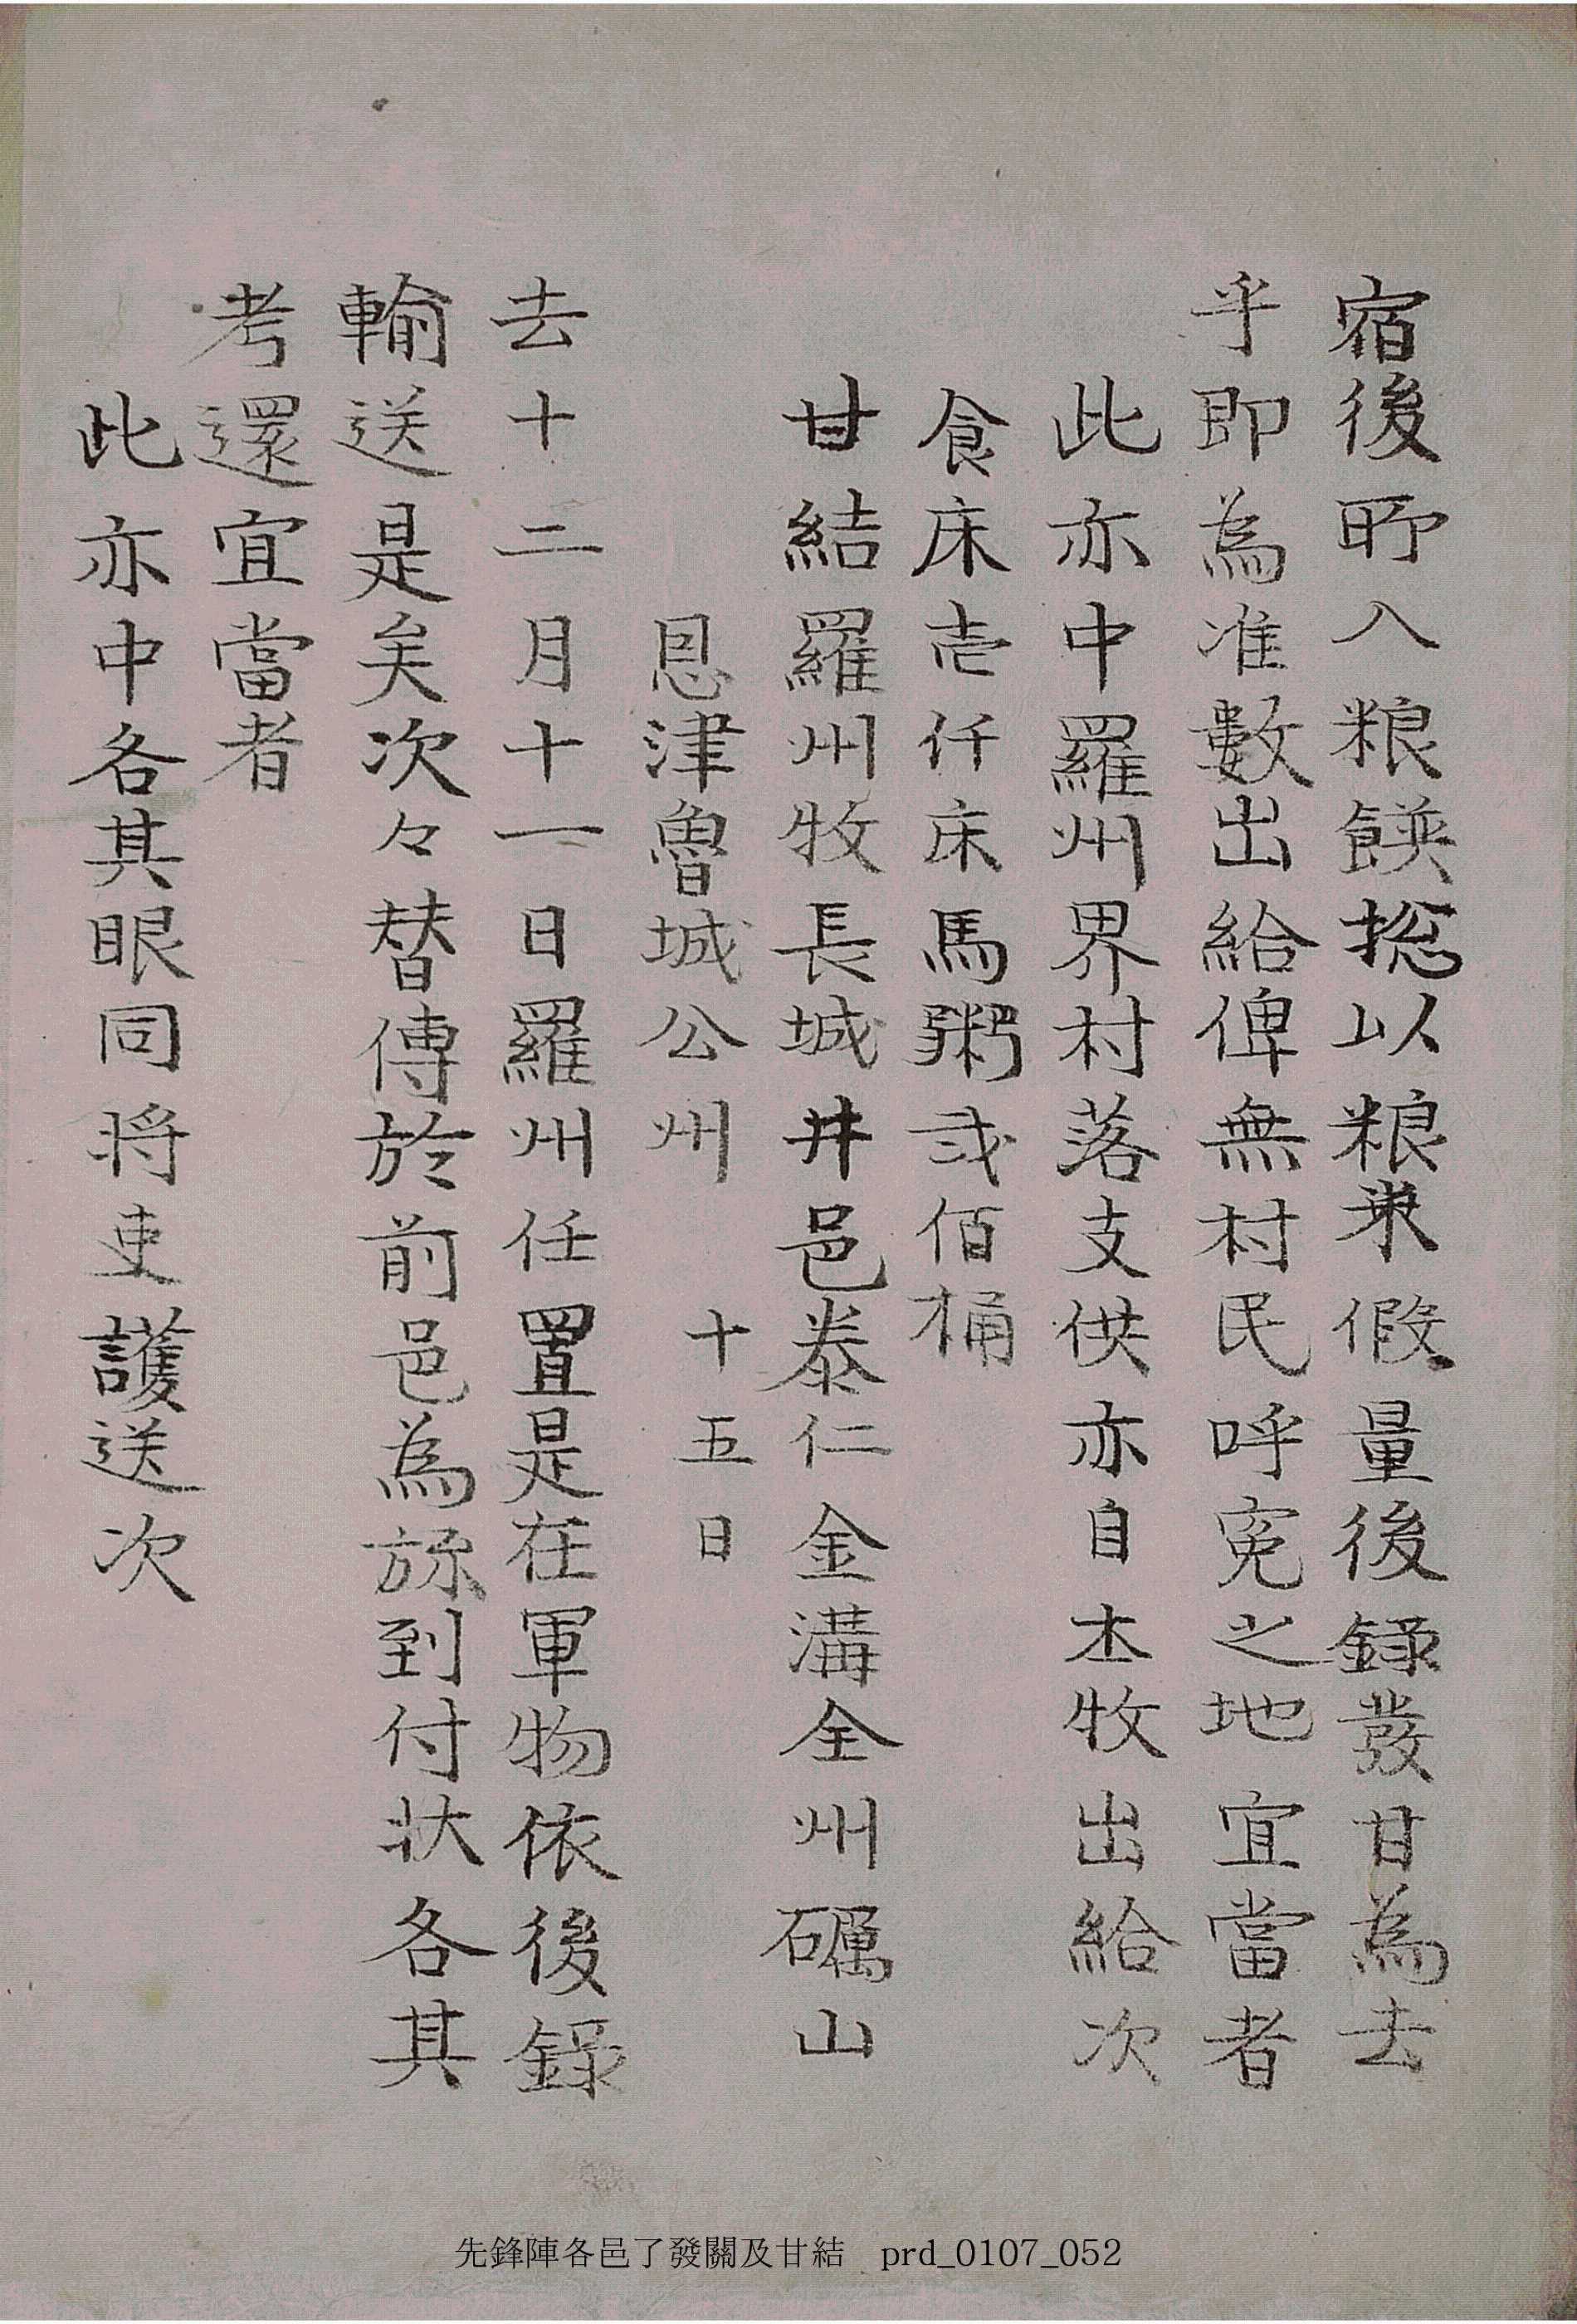 宿後所入粮饌摠以粮米假量後錄發甘為去
乎即為准數出給俾無村民呼冤之地宜當者
此亦中羅州界村落支供亦自本牧出給次
食床壱仟床馬粥貳佰桶
甘結羅州牧長城井邑泰仁金溝全州礪山
恩津魯城公州　十五日
去十二月十一日羅州任置是在軍物依後錄
輸送是矣次々替傳於前邑為旀到付狀各其
考還宜當者
此亦中各其眼同將吏護送次
先鋒陣各邑了發關及甘結 prd_0107_052